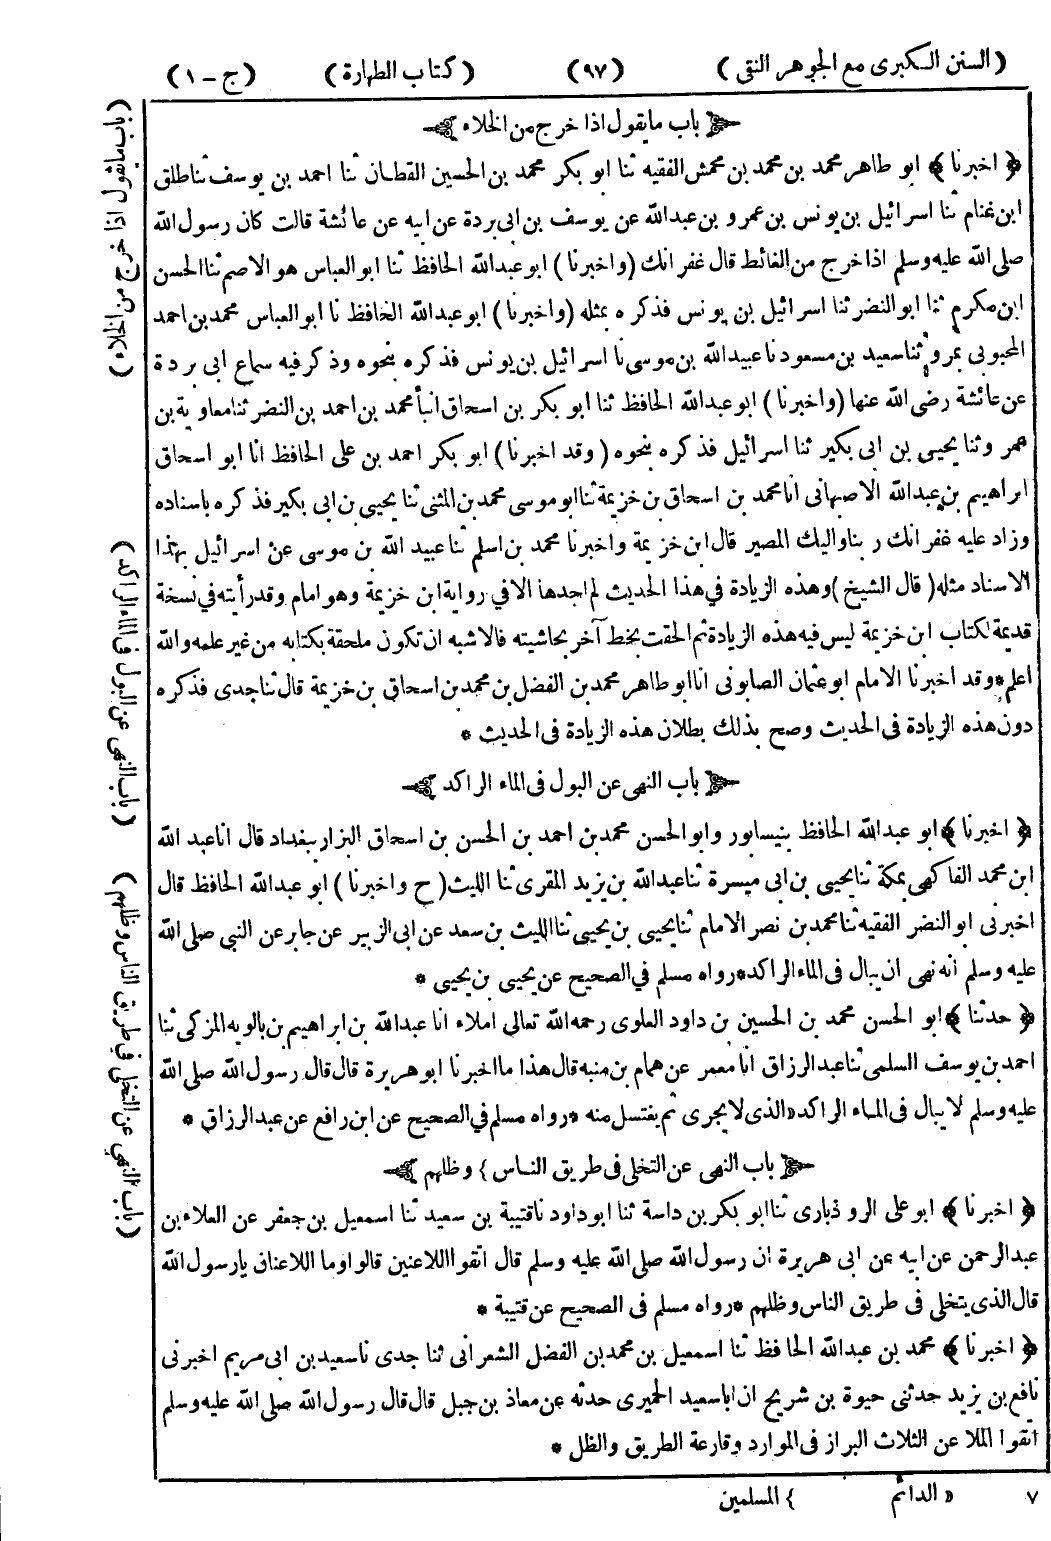 (السنن الكبرى مع الجوهر النقى) (٩٧) (كتاب الطهارة) (ج - ١)
باب ما يقول اذا خرج من الخلاء
﴿ اخبرنا ﴾ ابو طاهر محمد بن محمد بن محمش الفقيه ثنا ابو بكر محمد بن الحسين القطان ثنا احمد بن يوسف ثنا طلق
ابن غنام ثنا اسرائيل بن يونس بن عمرو بن عبدالله عن يوسف بن ابى بردة عن ابيه عن عائشة قالت كان رسول الله
صلى الله عليه وسلم اذا خرج من الغائط قال غفرانك (واخبرنا) ابو عبدالله الحافظ ثنا ابو العباس هو الاصم ثنا الحسن
ابن مكرم ثنا ابو النضر ثنا اسرائيل بن يونس فذكره بمثله (واخبرنا) ابو عبدالله الحافظ نا ابو العباس محمد بن احمد
المحبوبى بمرو ثنا سعيد بن مسعود نا عبيد الله بن موسى نا اسرائيل بن يونس فذكره بنحوه وذكر فيه سماع ابى بردة
عن عائشة رضى الله عنها (واخبرنا) ابو عبدالله الحافظ ثنا ابو بكر بن اسحاق انبأ محمد بن احمد بن النضر ثنا معاوية بن
عمر وثنا يحيى بن ابى بكير ثنا اسرائيل فذكره بنحوه (وقد اخبرنا) ابو بكر احمد بن على الحافظ انا ابو اسحاق
ابراهيم بن عبدالله الاصبهانى انا محمد بن اسحاق بن خزيمة ثنا ابو موسى محمد بن المثنى ثنا يحيى بن ابى بكير فذكره باسناده
وزاد عليه غفرانك ربنا واليك المصير قال ابن خزيمة واخبرنا محمد بن اسلم ثنا عبيد الله بن موسى عن اسرائيل بهذا
الاسناد مثله (قال الشيخ) وهذه الزيادة في هذا الحديث لم اجدها الا في رواية ابن خزيمة وهو امام وقد رأيته في نسخة
قديمة لكتاب ابن خزيمة ليس فيه هذه الزيادة ثم الحقت بخط آخر بحاشيته فالاشبه ان تكون ملحقة بكتابه من غير علمه والله
اعلم * وقد اخبرنا الامام ابو عثمان الصابونى انا ابو طاهر محمد بن الفضل بن محمد بن اسحاق بن خزيمة قال ثنا جدى فذكره
دون هذه الزيادة فى الحديث وصح بذلك بطلان هذه الزيادة فى الحديث *
باب النهى عن البول فى الماء الراكد
﴿ اخبرنا ﴾ ابو عبدالله الحافظ بنيسابور وابو الحسن محمد بن احمد بن الحسن بن اسحاق البزار ببغداد قال انا عبد الله
ابن محمد الفاكهى بمكة ثنا يحيى بن ابى ميسرة ثنا عبدالله بن يزيد المقرى ثنا الليث (ح واخبرنا) ابو عبدالله الحافظ قال
اخبرنى ابو النضر الفقيه ثنا محمد بن نصر الامام ثنا يحيى بن يحيى ثنا الليث بن سعد عن ابى الزبير عن جابر عن النبى صلى الله
عليه وسلم انه نهى ان يبال فى الماء الراكد * رواه مسلم في الصحيح عن يحيى بن يحيى *
﴿ حدثنا ﴾ ابو الحسن محمد بن الحسين بن داود العلوى رحمه الله تعالى املاء انا عبدالله بن ابراهيم بن بالويه المزكى ثنا
احمد بن يوسف السلمى ثنا عبد الرزاق انا معمر عن همام بن منبه قال هذا ما اخبرنا ابو هريرة قال قال رسول الله صلى الله
عليه وسلم لا يبال فى الماء الراكد « الذى لا يجرى ثم يغتسل منه * رواه مسلم في الصحيح عن ابن رافع عن عبد الرزاق *
باب النهى عن التخلى فى طريق الناس } وظلهم
﴿ اخبرنا ﴾ ابو على الروذبارى ثنا ابو بكر بن داسة ثنا ابو داود نا قتيبة بن سعيد ثنا اسمعيل بن جعفر عن العلاء بن
عبد الرحمن عن ابيه عن ابى هريرة ان رسول الله صلى الله عليه وسلم قال اتقوا اللاعنين قالوا وما اللاعنان يا رسول الله
قال الذى يتخلى فى طريق الناس وظلهم * رواه مسلم فى الصحيح عن قتيبة *
﴿ اخبرنا ﴾ محمد بن عبدالله الحافظ ثنا اسمعيل بن محمد بن الفضل الشعرانى ثنا جدى نا سعيد بن ابى مريم اخبرنى
نافع بن يزيد حدثنى حيوة بن شريح ان ابا سعيد الحميرى حدثه عن معاذ بن جبل قال قال رسول الله صلى الله عليه وسلم
اتقوا الملا عن الثلاث البراز فى الموارد وقارعة الطريق والظل *
٧ « الدائم } المسلمين
(باب ما يقول اذا خرج من الخلاء)
(باب النهى عن البول فى الماء الراكد)
(باب النهي عن التخلى في طريق الناس وظلهم)